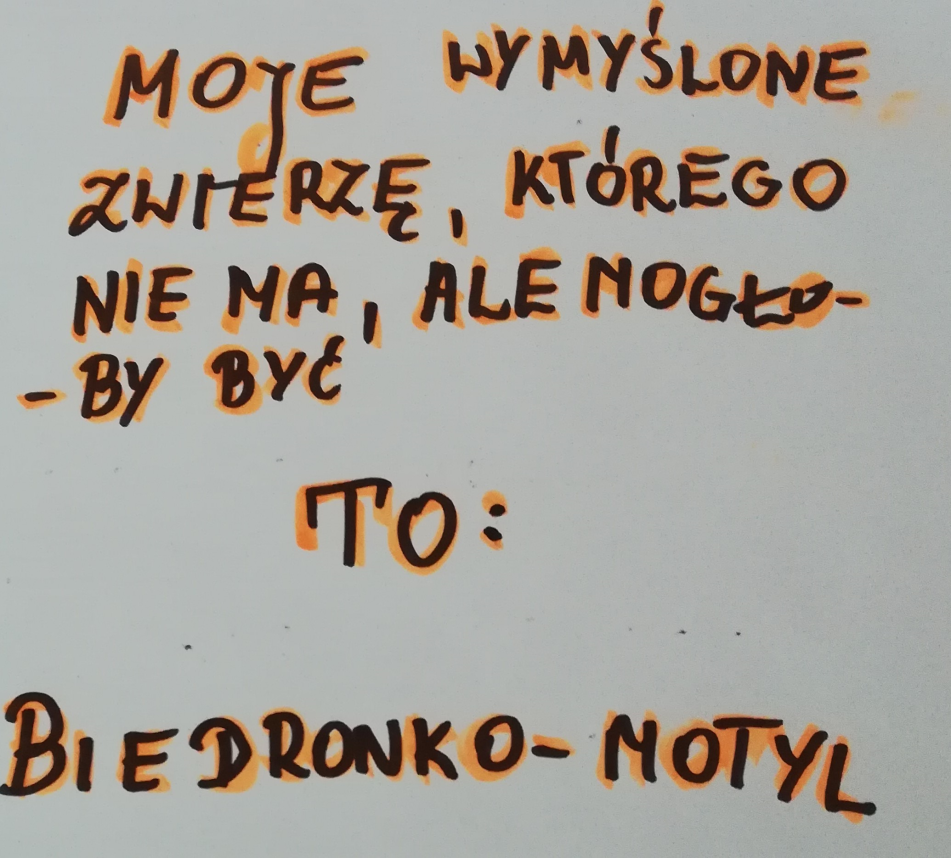 MOJE WYMYŚLONE
ZWIERZĘ, KTÓREGO
NIE MA, ALE MOGŁO-
-BY BYĆ
TO:
BIEDRONKO-MOTYL